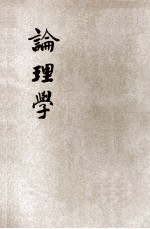 論理學